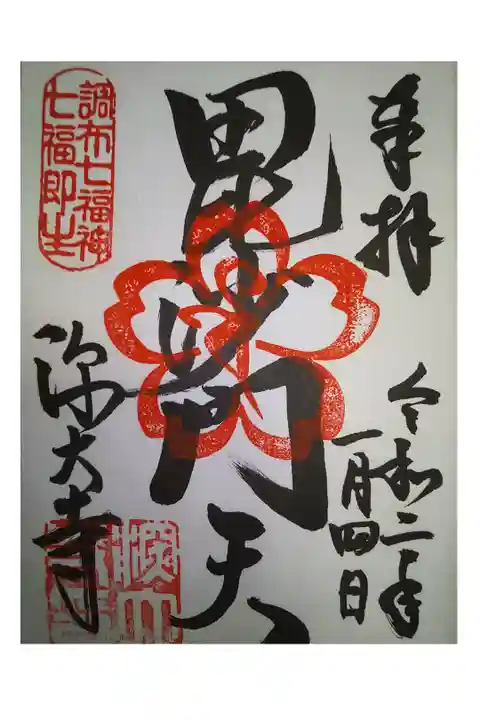 奉拝
令和二年
一月四日
毘沙門天
調布七福神
七福即生
深大寺